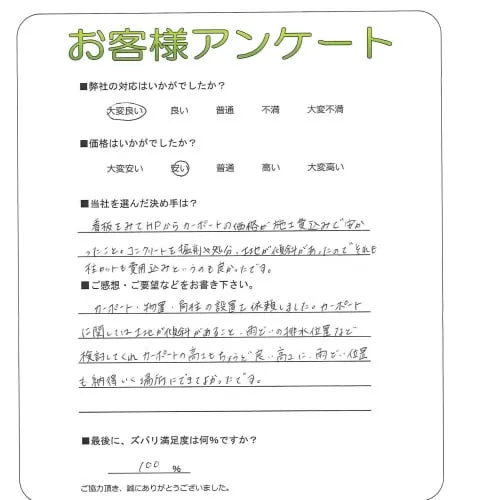 お客様アンケート
■弊社の対応はいかがでしたか?
大変良い 良い 普通 不満 大変不満
■価格はいかがでしたか?
大変安い 安い 普通 高い 大変高い
■当社を選んだ決め手は?
看板をみてHPからカーポートの価格が施工費込みで安か
ったこと。コンクリートを掘削や処分、土地が傾斜があったのでそれも
柱カットも費用込みというのも良かったです。
■ご感想・ご要望などをお書き下さい。
カーポート・物置・角柱の設置を依頼しました。カーポート
に関しては土地が傾斜があること、雨どいの排水位置など
検討してくれカーポートの高さもちょうど良い高さに、雨どい位置
も納得いく場所にできてよかったです。
■最後に、ズバリ満足度は何%ですか?
100 %
ご協力頂き、誠にありがとうございました。